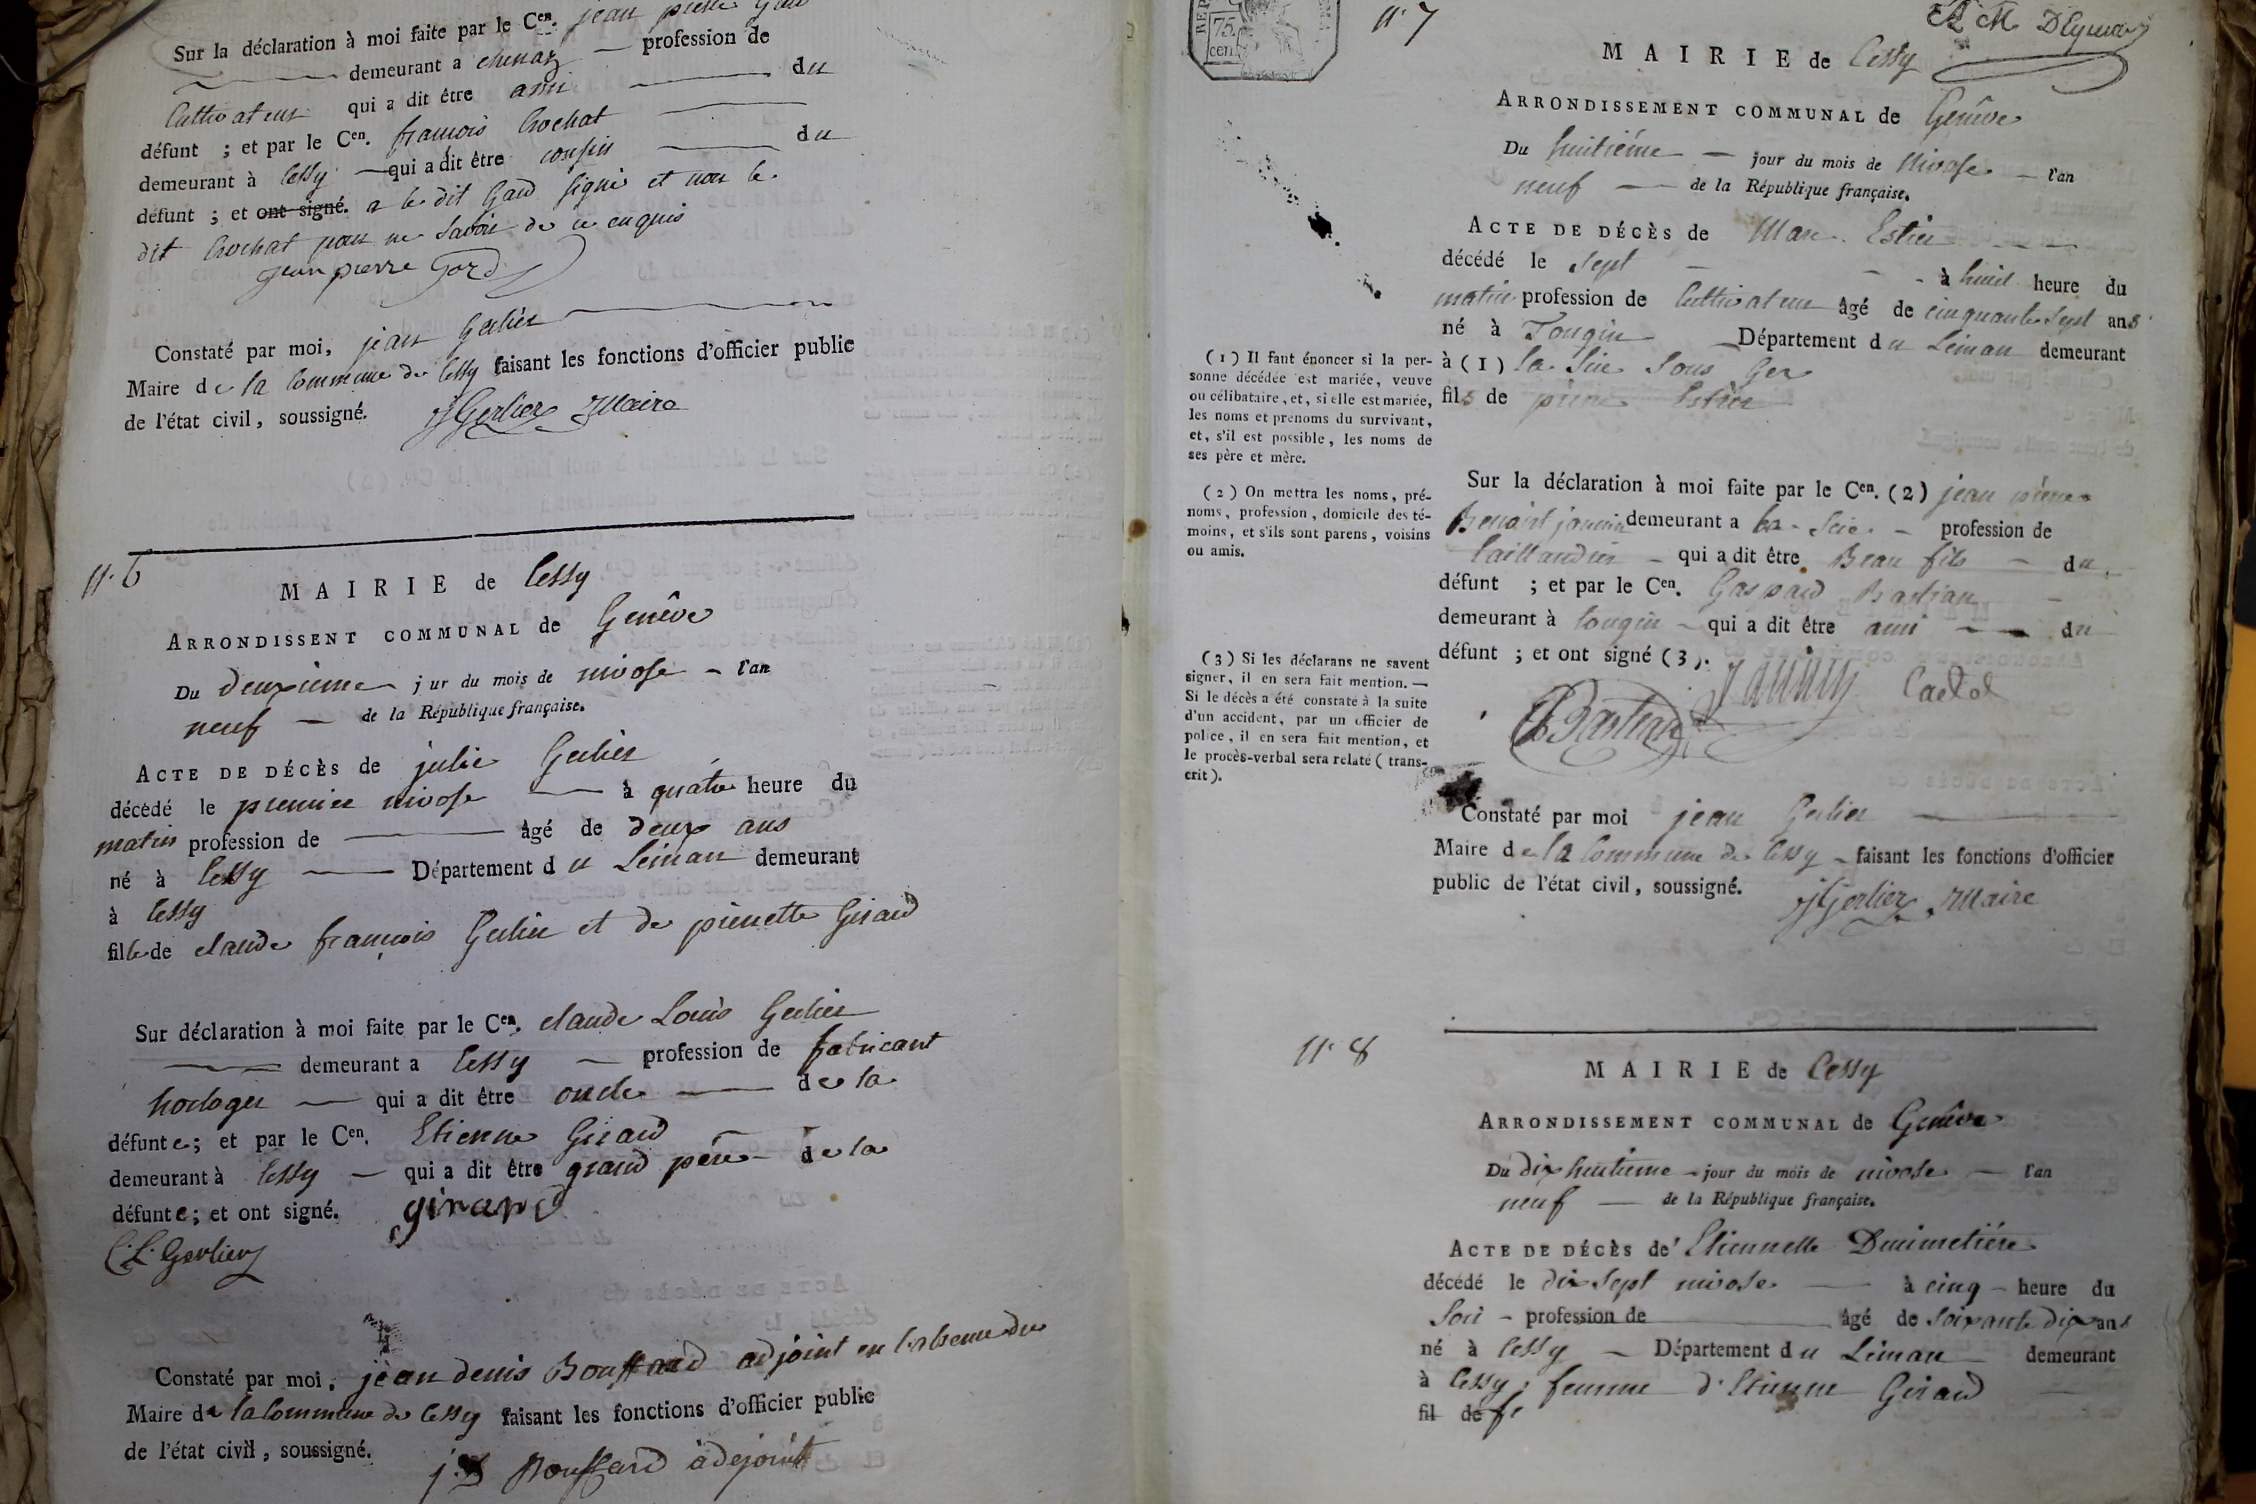 Sur la déclaration à moi faite par le Cen. jean pierre Gard
demeurant a chenaz profession de
Cultivateur qui a dit être ami du
défunt ; et par le Cen. françois Crochat
demeurant à Cessy qui a dit être cousin du
défunt ; et ont signé. a le dit Gard signé et non le
dit Crochat pour ne savoir de ce enquis
jean pierre Gard
Constaté par moi, jean Gerlier
Maire de la Commune de Cessy faisant les fonctions d'officier public
de l'état civil, soussigné. J Gerlier Maire
N. 6
MAIRIE de Cessy
ARRONDISSENT COMMUNAL de Genêve
Du deuxieme j ur du mois de nivose l'an
neuf de la République française.
ACTE DE DÉCÈS de julie Gerlier
décédé le premier nivose à quatre heure du
matin profession de âgé de deux ans
né à Cessy Département du Léman demeurant
à Cessy
fille de claude françois Gerlier et de pierrette Girard
Sur déclaration à moi faite par le Cen. claude Louis Gerlier
demeurant a Cessy profession de fabricant
horloger qui a dit être oncle de la
défunte ; et par le Cen. Etienne Girard
demeurant à Cessy qui a dit être grand père de la
défunte ; et ont signé. girard
C. L. Gerlier
Constaté par moi, jean denis Bouffard adjoint en l'absence du
Maire de la Commune de Cessy faisant les fonctions d'officier public
de l'état civil, soussigné.
j. D Bouffard adejoint
75.
cen.
N. 7
MAIRIE de Cessy
ARRONDISSEMENT COMMUNAL de Genêve
Du huitiéme jour du mois de Nivose l'an
neuf de la République française.
ACTE DE DÉCÈS de Marc Estier
décédé le sept à huit heure du
matin profession de Cultivateur âgé de cinquante sept ans
né à Tougin Département du Léman demeurant
à (1) la Scie sous Gex
fils de pierre Estier
(1) Il faut énoncer si la per-
sonne décédée est mariée, veuve
ou célibataire, et, si elle est mariée,
les noms et prénoms du survivant,
et, s'il est possible, les noms de
ses père et mère.
Sur la déclaration à moi faite par le Cen. (2) jean pierre
Benoit jannin demeurant a la Scie profession de
taillandier qui a dit être Beau fils du
défunt ; et par le Cen. Gaspard Bastian
demeurant à tougin qui a dit être ami du
défunt ; et ont signé (3).
(2) On mettra les noms, pré-
noms, profession, domicile des té-
moins, et s'ils sont parens, voisins
ou amis.
(3) Si les déclarans ne savent
signer, il en sera fait mention. —
Si le décès a été constaté à la suite
d'un accident, par un officier de
police, il en sera fait mention, et
le procès-verbal sera relaté (trans-
crit).
Bastian Jannin
Constaté par moi jean Gerlier
Maire de la Commune de Cessy faisant les fonctions d'officier
public de l'état civil, soussigné.
J Gerlier Maire
N. 8
MAIRIE de Cessy
ARRONDISSEMENT COMMUNAL de Genêve
Du dix huitieme jour du mois de nivose l'an
neuf de la République française.
ACTE DE DÉCÈS de Etiennette Duimetiére
décédé le dix sept nivose à cinq heure du
soir profession de âgé de soixante dix ans
né à Cessy Département du Léman demeurant
à Cessy, femme d'Etienne Girard
fil de